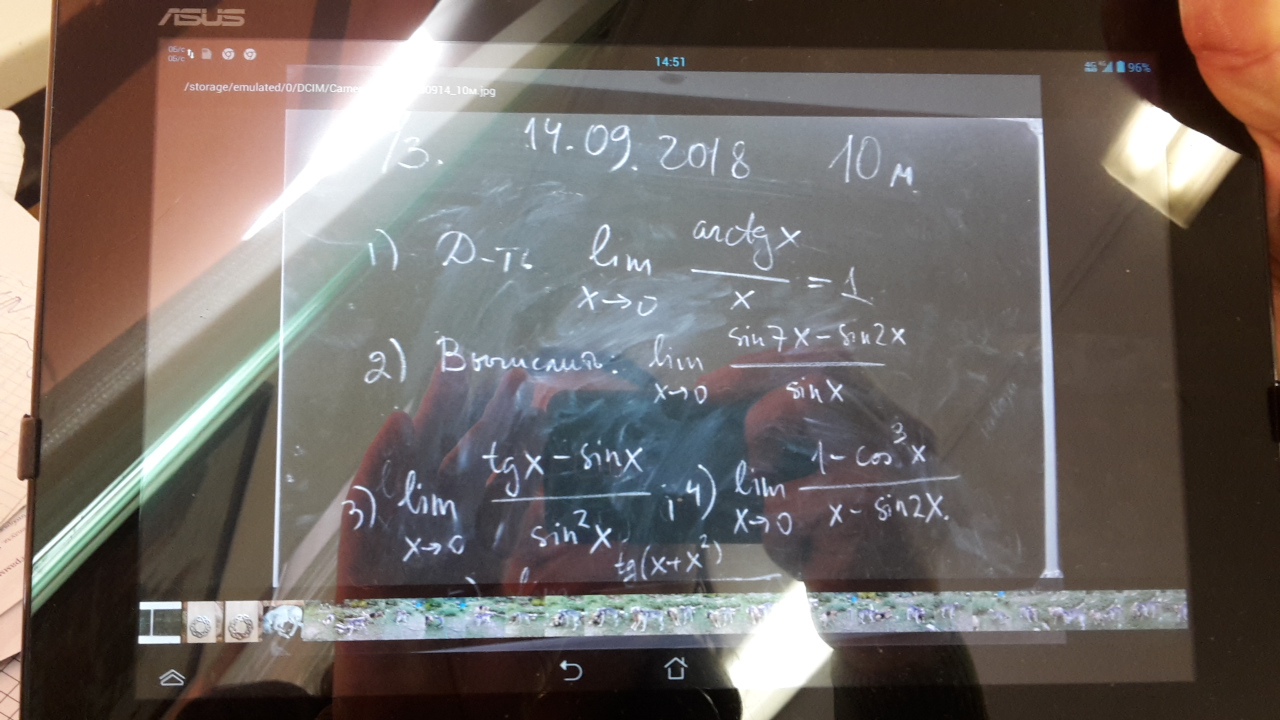 ASUS
0Б/с
0Б/с
14:51
4G
96%
/storage/emulated/0/DCIM/Came 0914_10м.jpg
/3. 14.09.2018 10 м
1) Д-ть lim x→0 arctg x / x = 1
2) Вычислить: lim x→0 sin7x - sin2x / sin x
3) lim x→0 tg x - sin x / sin²x ; 4) lim x→0 1 - cos³x / x - sin2x.
tg(x+x²)